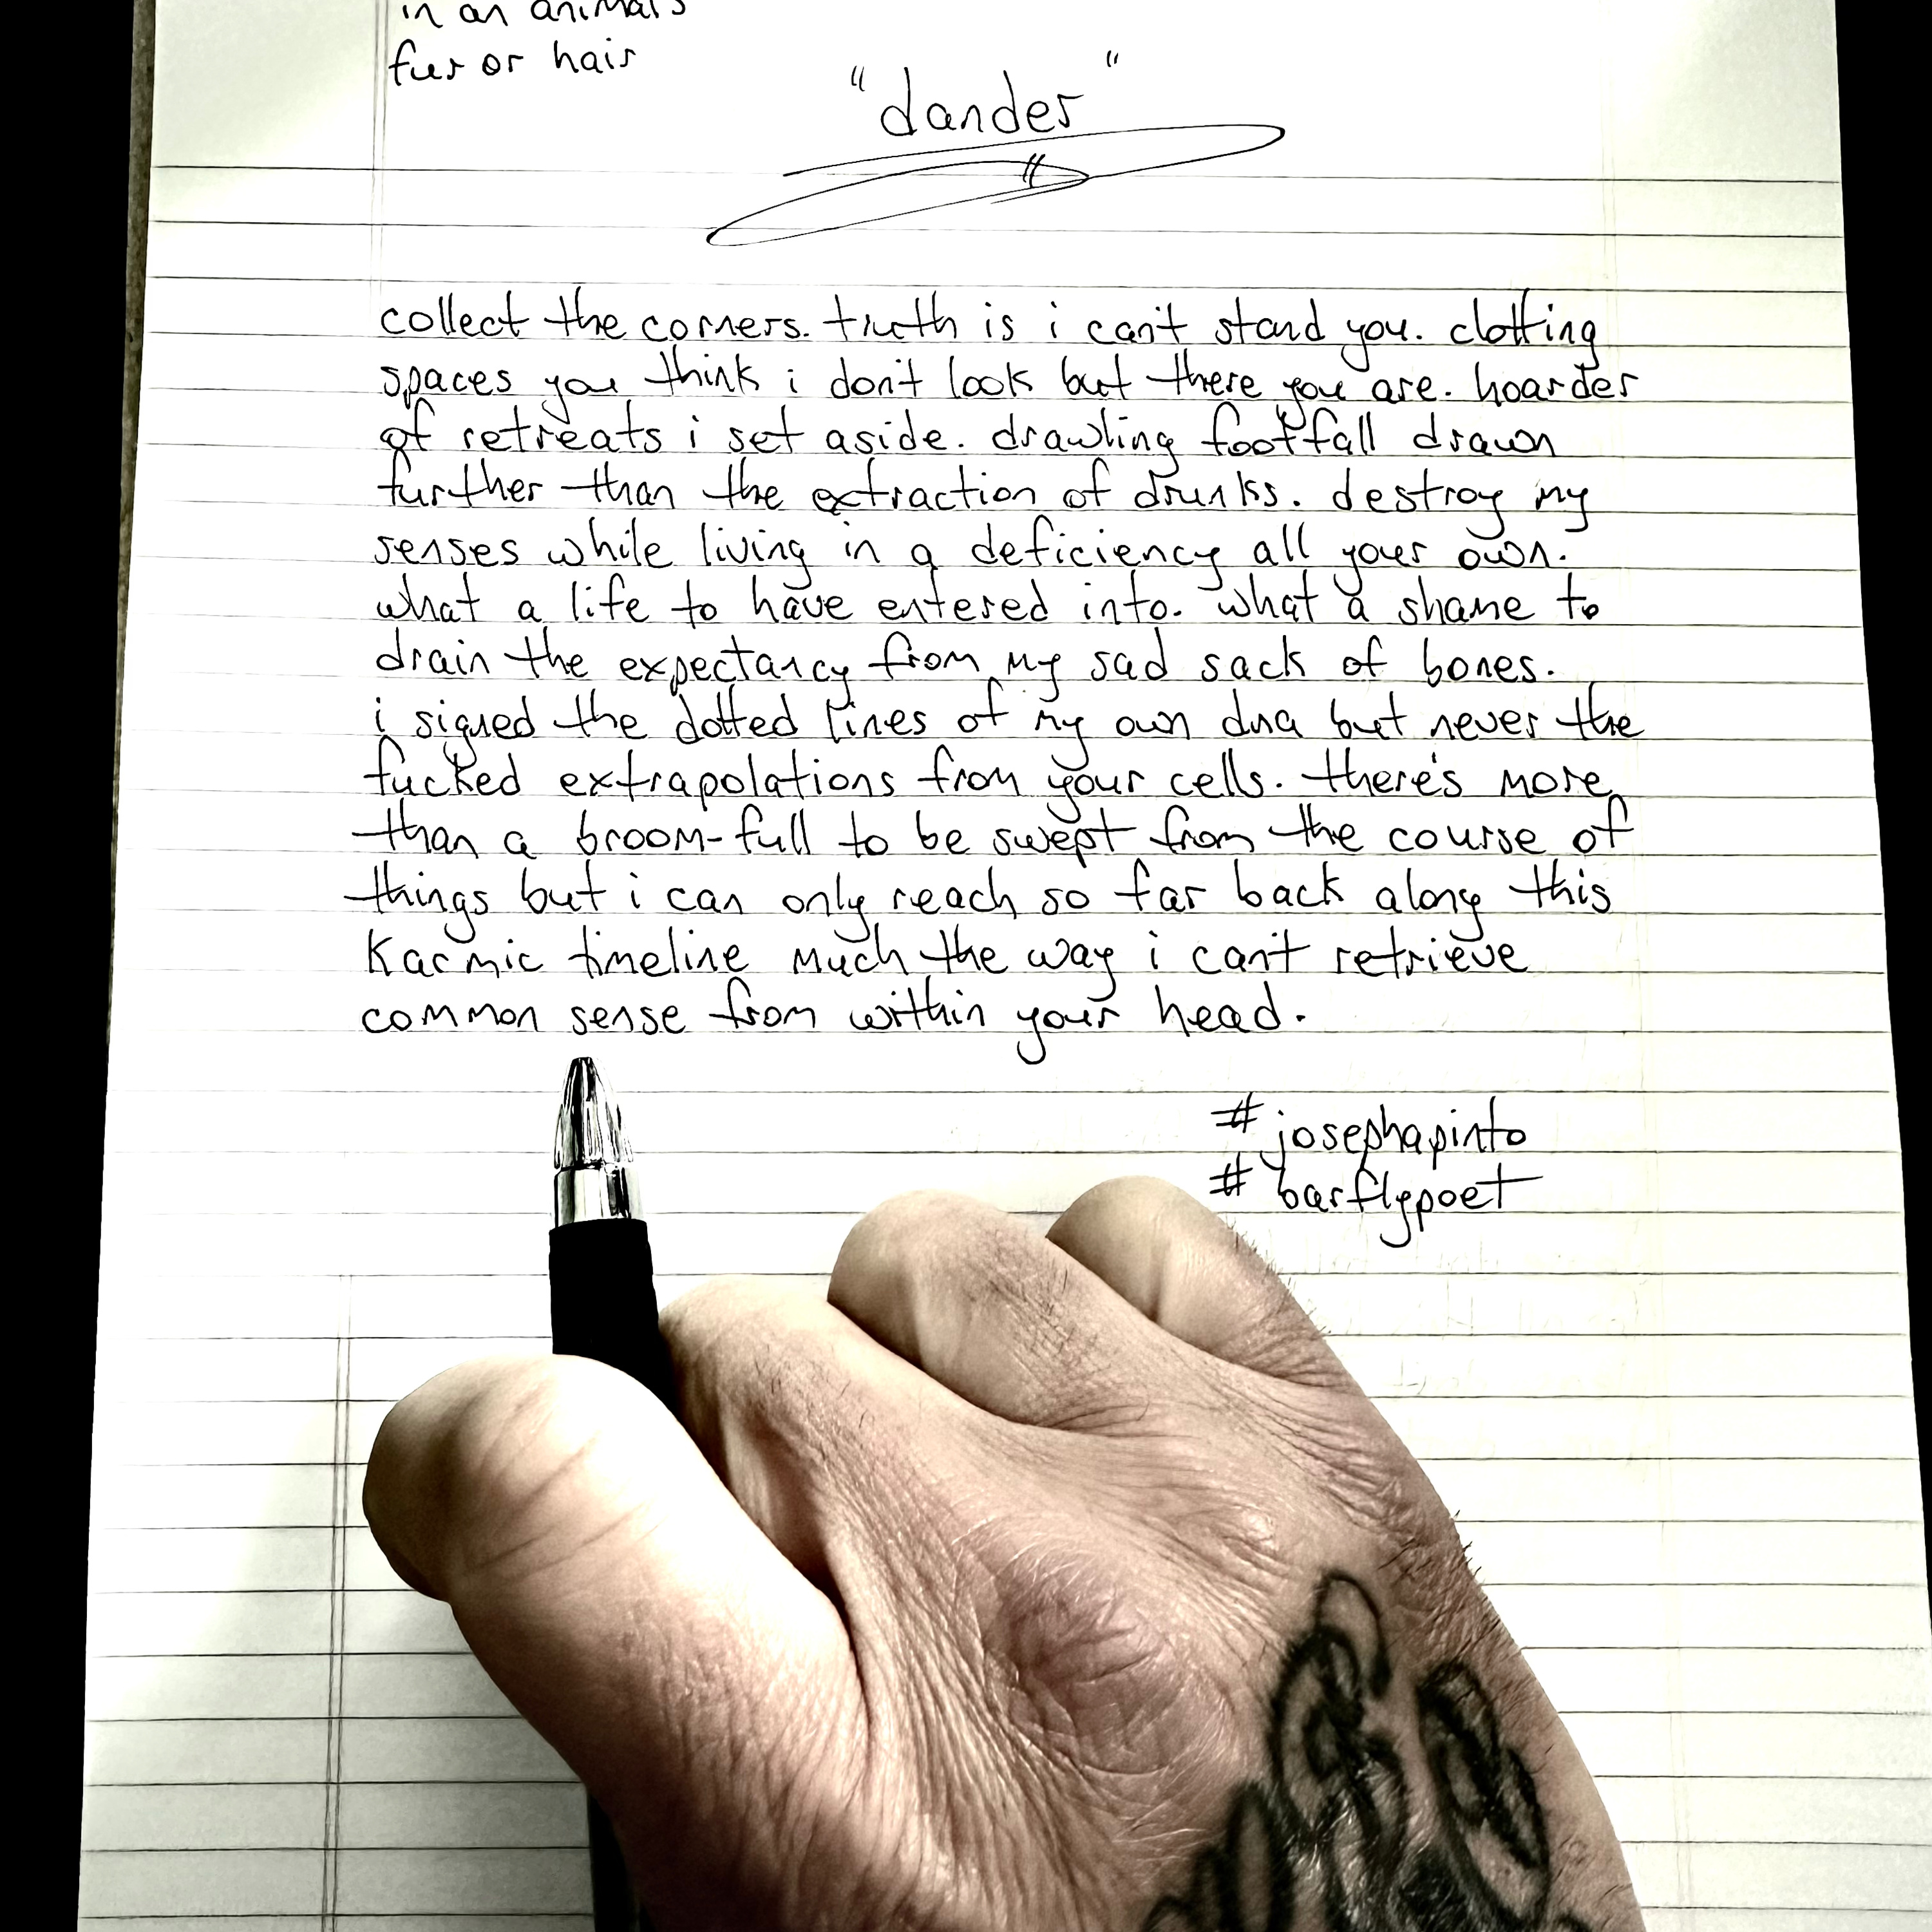 in an animals
fur or hair
"dander"
collect the corners. truth is i can't stand you. clotting
spaces you think i don't look but there you are. hoarder
of retreats i set aside. drawling footfall drawn
further than the extraction of drunks. destroy my
senses while living in a deficiency all your own.
what a life to have entered into. what a shame to
drain the expectancy from my sad sack of bones.
i signed the dotted lines of my own dna but never the
fucked extrapolations from your cells. there's more
than a broom-full to be swept from the course of
things but i can only reach so far back along this
karmic timeline much the way i can't retrieve
common sense from within your head.
#josephapinto
#barflypoet